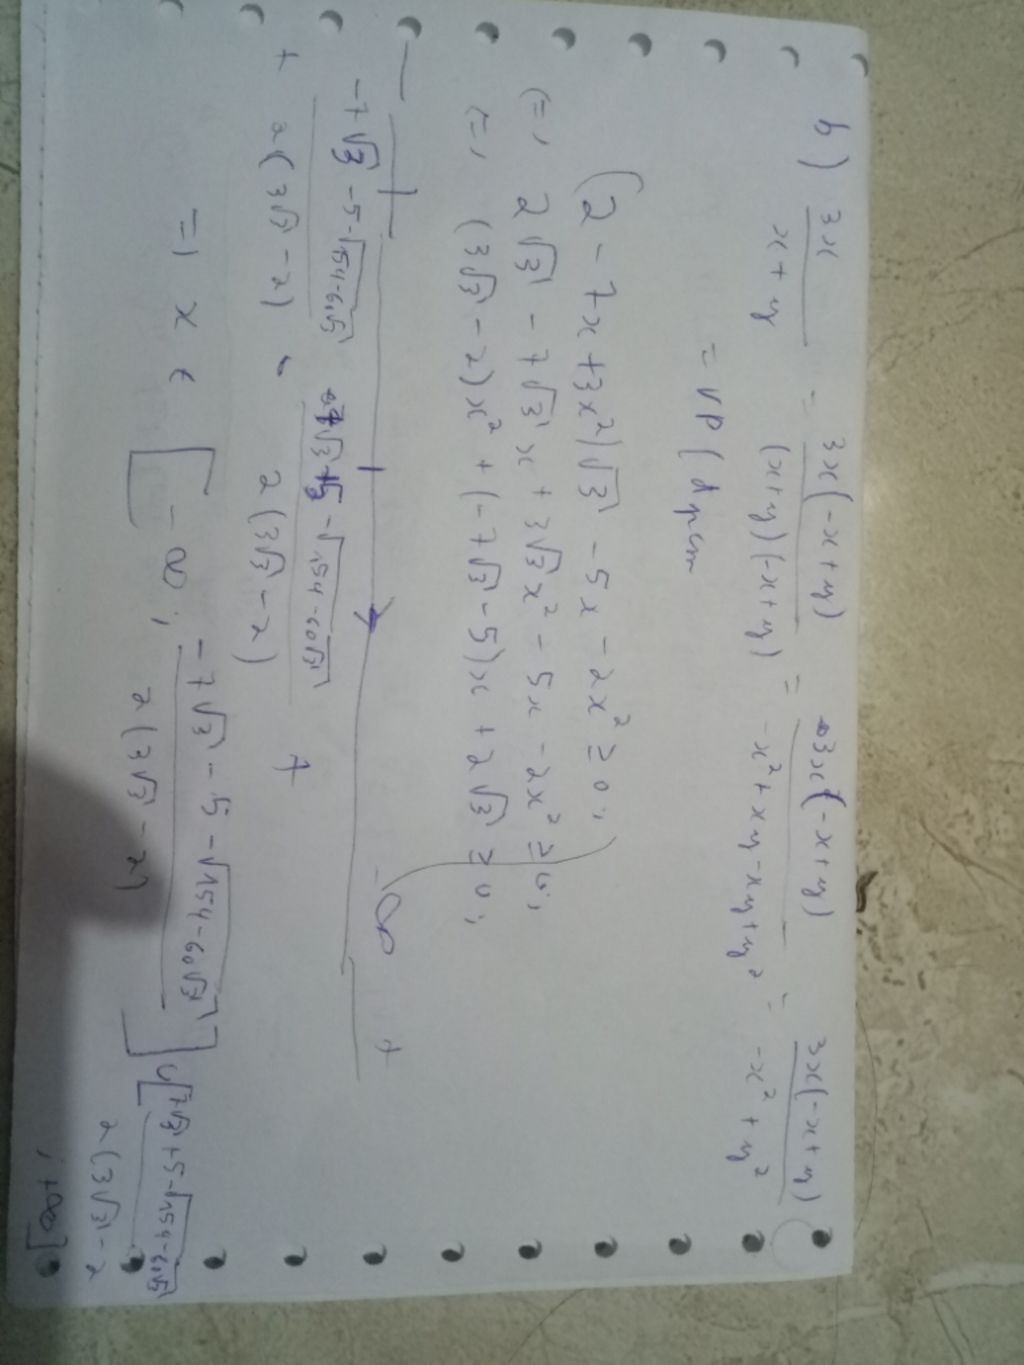 b) 3x/(x+y) = 3x(-x+y)/((x+y)(-x+y)) = 3x(-x+y)/(-x²+xy-xy+y²) = 3x(-x+y)/(-x²+y²)
= VP (đpcm
(2 - 7x + 3x²)√3 - 5x - 2x² ≥ 0;
(=) 2√3 - 7√3x + 3√3x² - 5x - 2x² ≥ 0;
(=) (3√3 - 2)x² + (-7√3 - 5)x + 2√3 ≥ 0;
- ∞ +
(-7√3 - 5 - √(154-60√3))/(2(3√3 - 2)) (7√3 + 5 - √(154-60√3))/(2(3√3 - 2))
+ +
=) x ∈ [-∞; (-7√3 - 5 - √(154-60√3))/(2(3√3 - 2))] ∪ [(7√3 + 5 - √(154-60√3))/(2(3√3 - 2
; +∞]